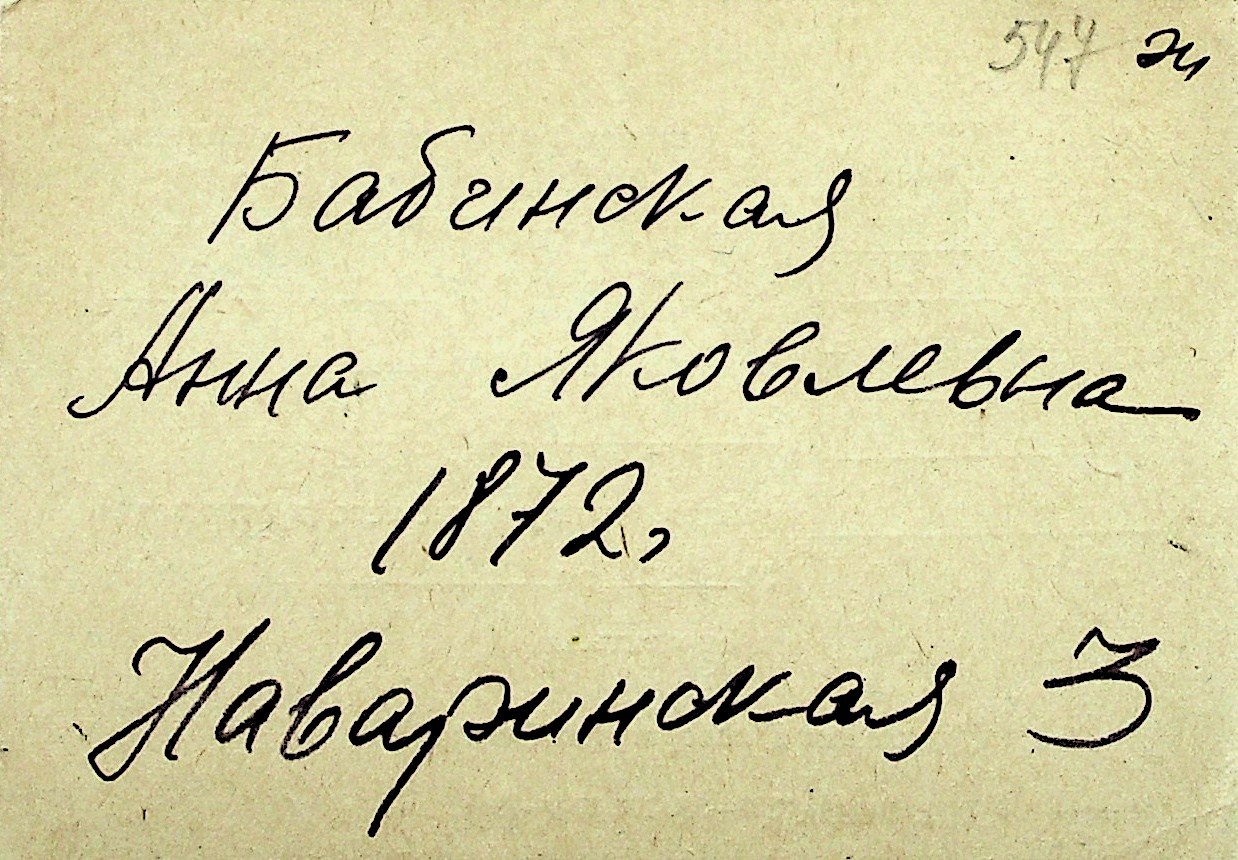 547 ж
Бабинская
Анна Яковлевна
1872,
Наваринская 3